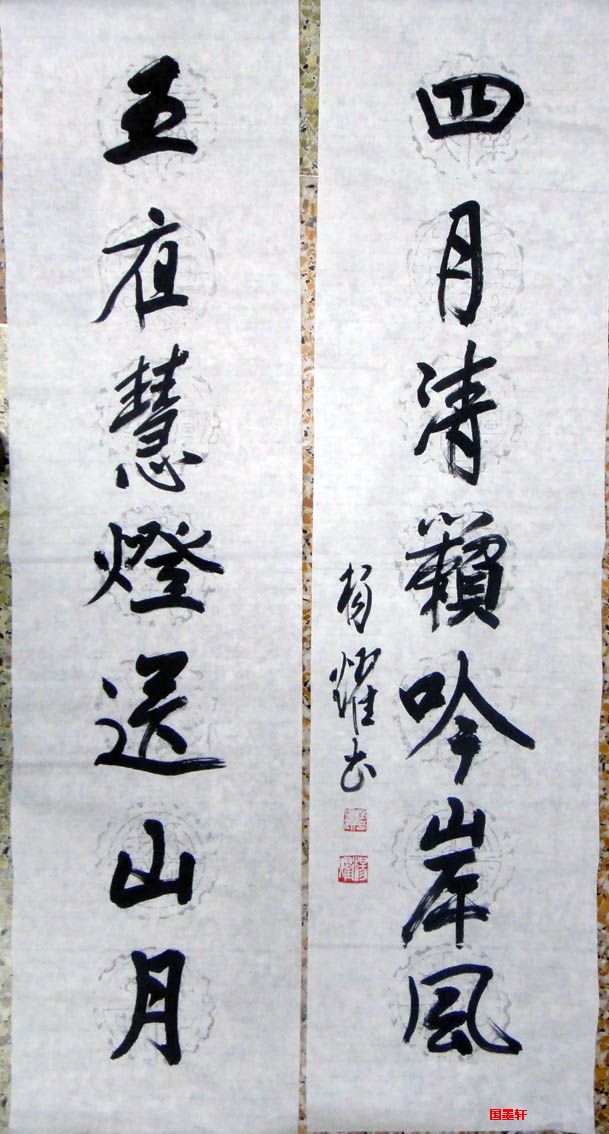 四月清籟吟岸風
楊耀书
五夜慧燈送山月
国墨轩